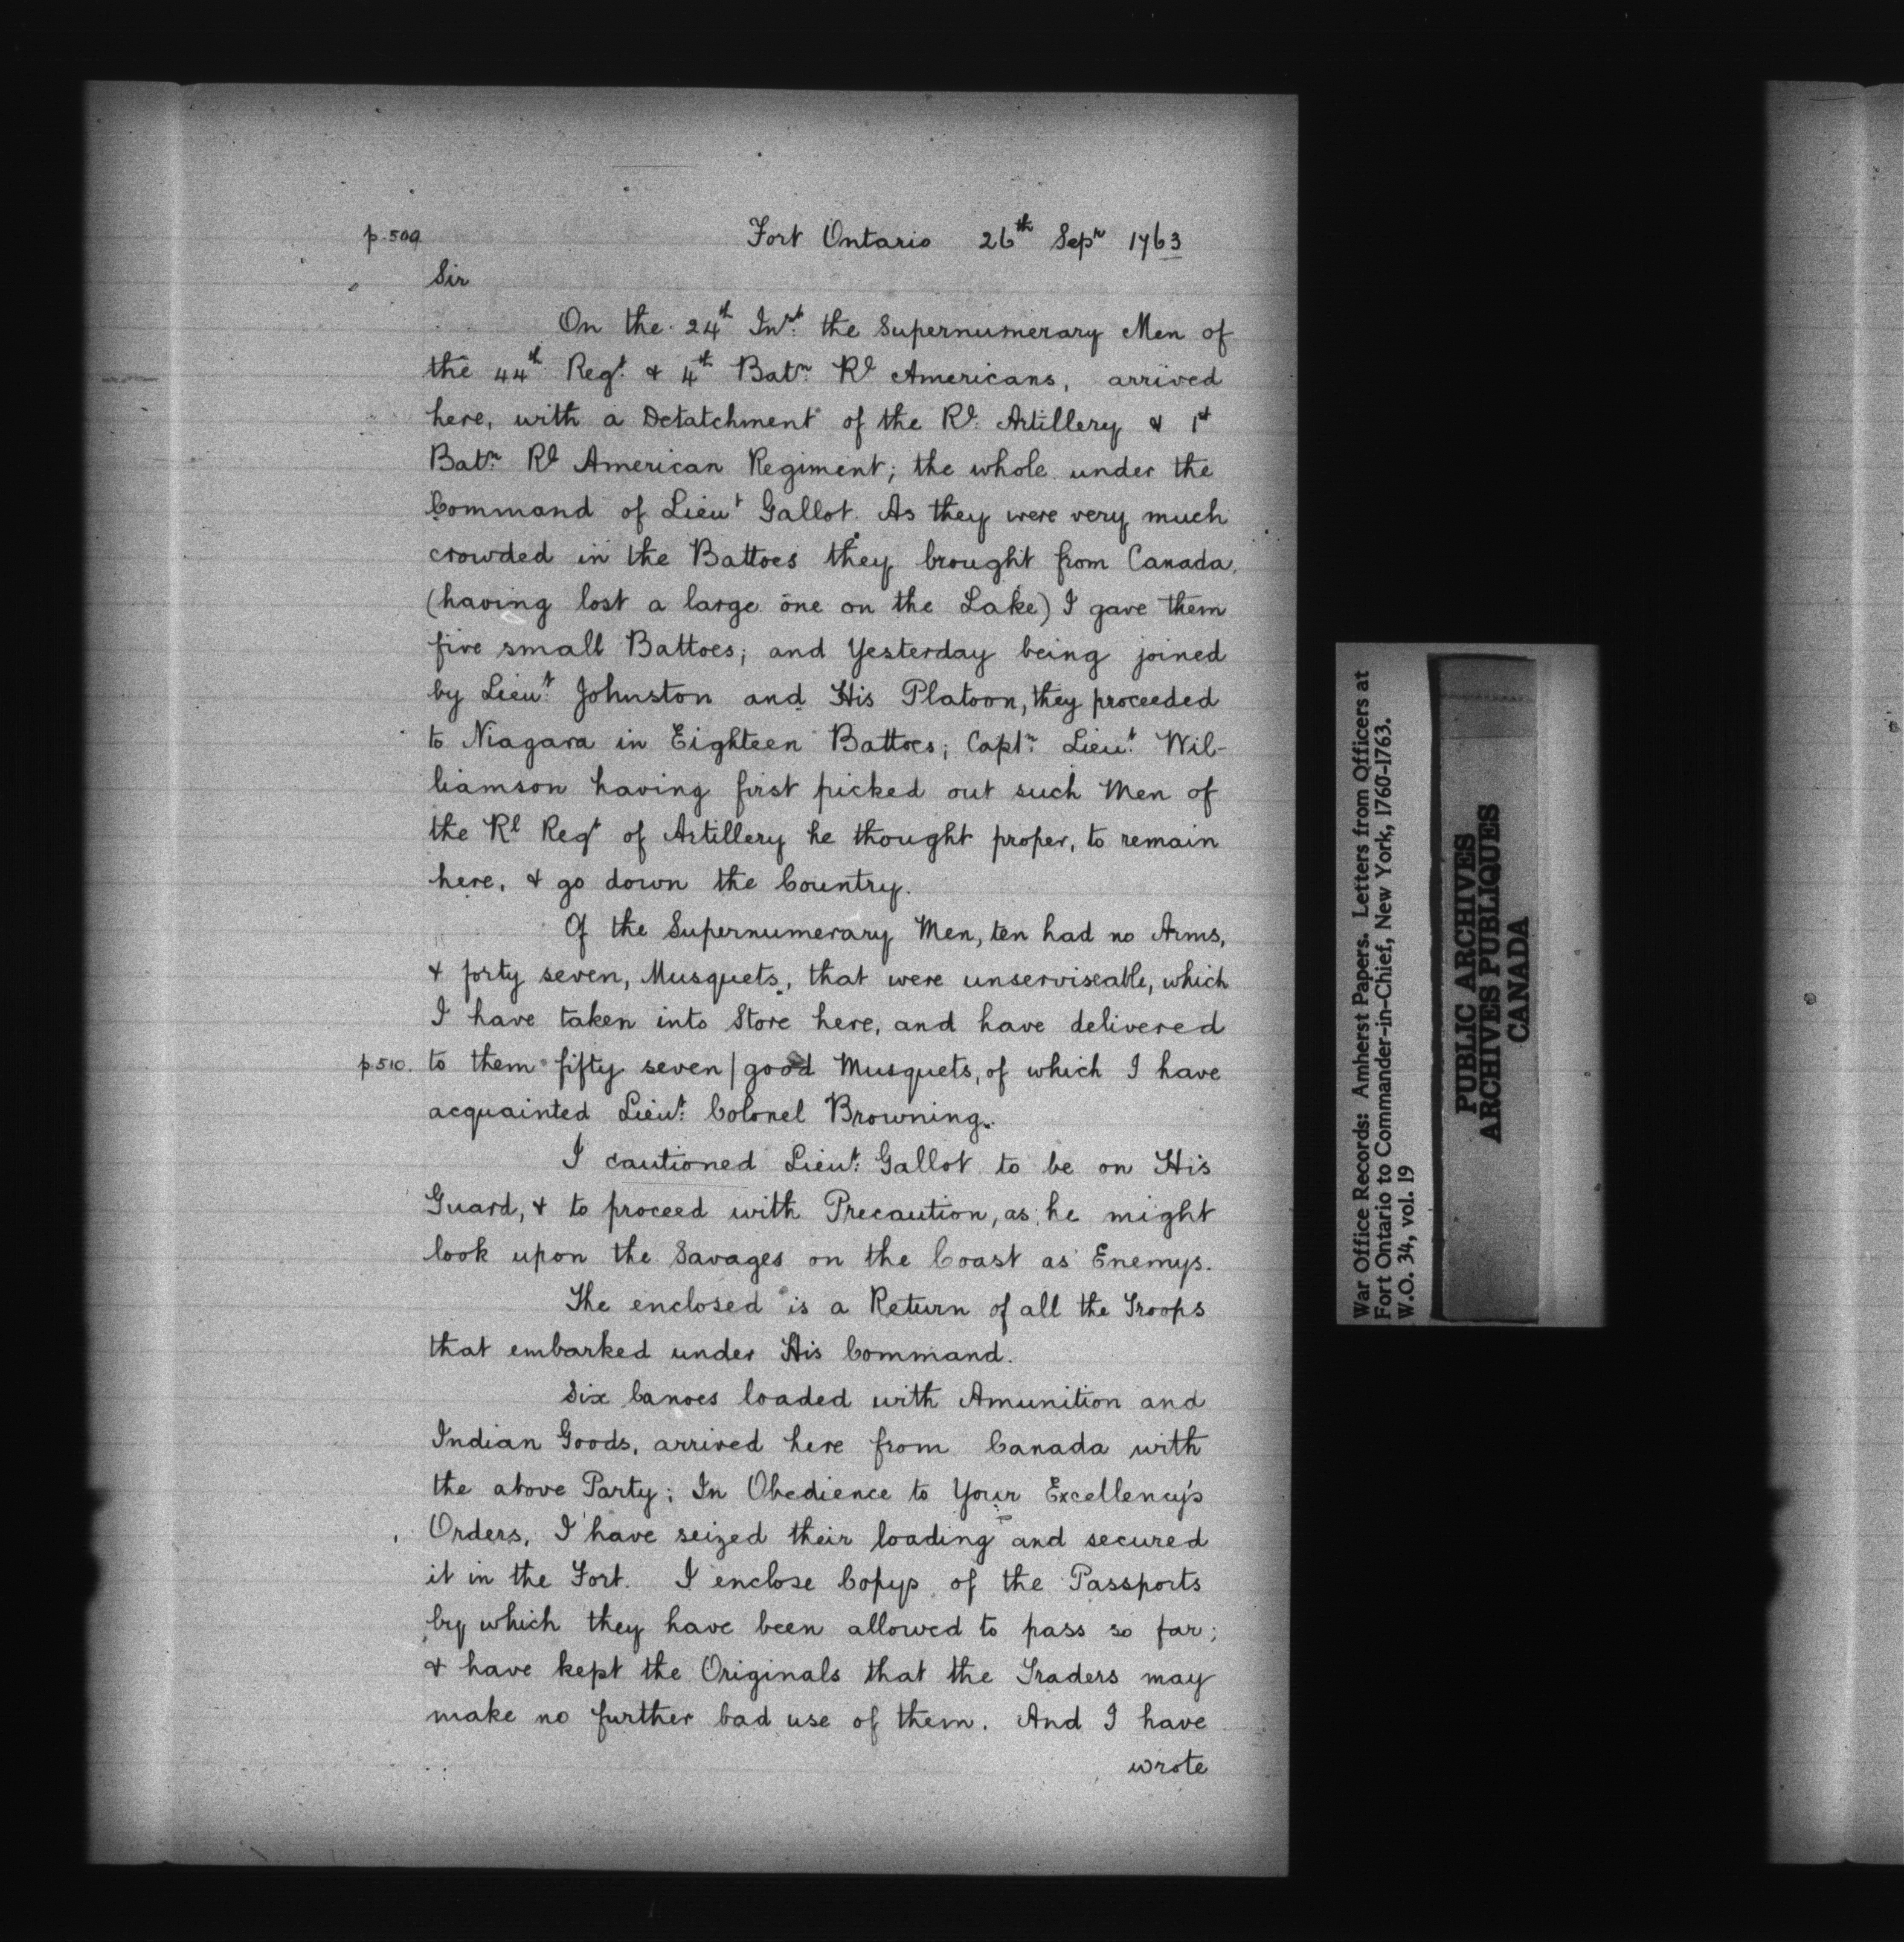 p.509
Fort Ontario 26th Sepr 1763
Sir
On the 24th Inst: the Supernumerary Men of
the 44th Regt. & 4th Batn: Rl Americans, arrived
here, with a Detatchment of the Rl: Artillery & 1st
Batn: Rl American Regiment; the whole under the
Command of Lieut Gallot. As they were very much
crowded in the Battoes they brought from Canada,
(having lost a large one on the Lake) I gave them
five small Battoes; and Yesterday being joined
by Lieut: Johnston and His Platoon, they proceeded
to Niagara in Eighteen Battoes; Captn: Lieut: Wil-
liamson having first picked out such Men of
the Rl Regt of Artillery he thought proper, to remain
here, & go down the Country.
Of the Supernumerary Men, ten had no Arms,
& forty seven, Musquets, that were unserviseable, which
I have taken into Store here, and have delivered
p510. to them fifty seven | good Musquets, of which I have
acquainted Lieut: Colonel Browning.
I cautioned Lieut: Gallot to be on His
Guard, & to proceed with Precaution, as he might
look upon the Savages on the Coast as Enemys.
The enclosed is a Return of all the Troops
that embarked under His Command.
Six Canoes loaded with Amunition and
Indian Goods, arrived here from Canada with
the above Party; In Obedience to Your Excellency's
Orders, I have seized their loading and secured
it in the Fort. I enclose Copys of the Passports
by which they have been allowed to pass so far;
& have kept the Originals that the Traders may
make no further bad use of them. And I have
wrote
War Office Records: Amherst Papers. Letters from Officers at
Fort Ontario to Commander-in-Chief, New York, 1760-1763.
W.O. 34, vol. 19
PUBLIC ARCHIVES
ARCHIVES PUBLIQUES
CANADA